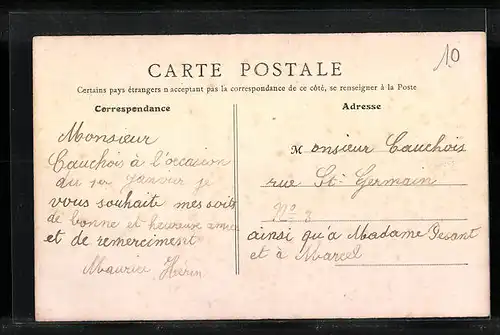 10
CARTE POSTALE
Certains pays étrangers n acceptant pas la correspondance de ce côté, se renseigner à la Poste
Correspondance
Monsieur
Cauchois à l'occasion
du 1er Janvier je
vous souhaite mes
de bonne et heureuse
et de remerciment
Maurice
Adresse
Monsieur Cauchois
rue St-Germain
No 3
ainsi qu'à Madame
et à Marcel